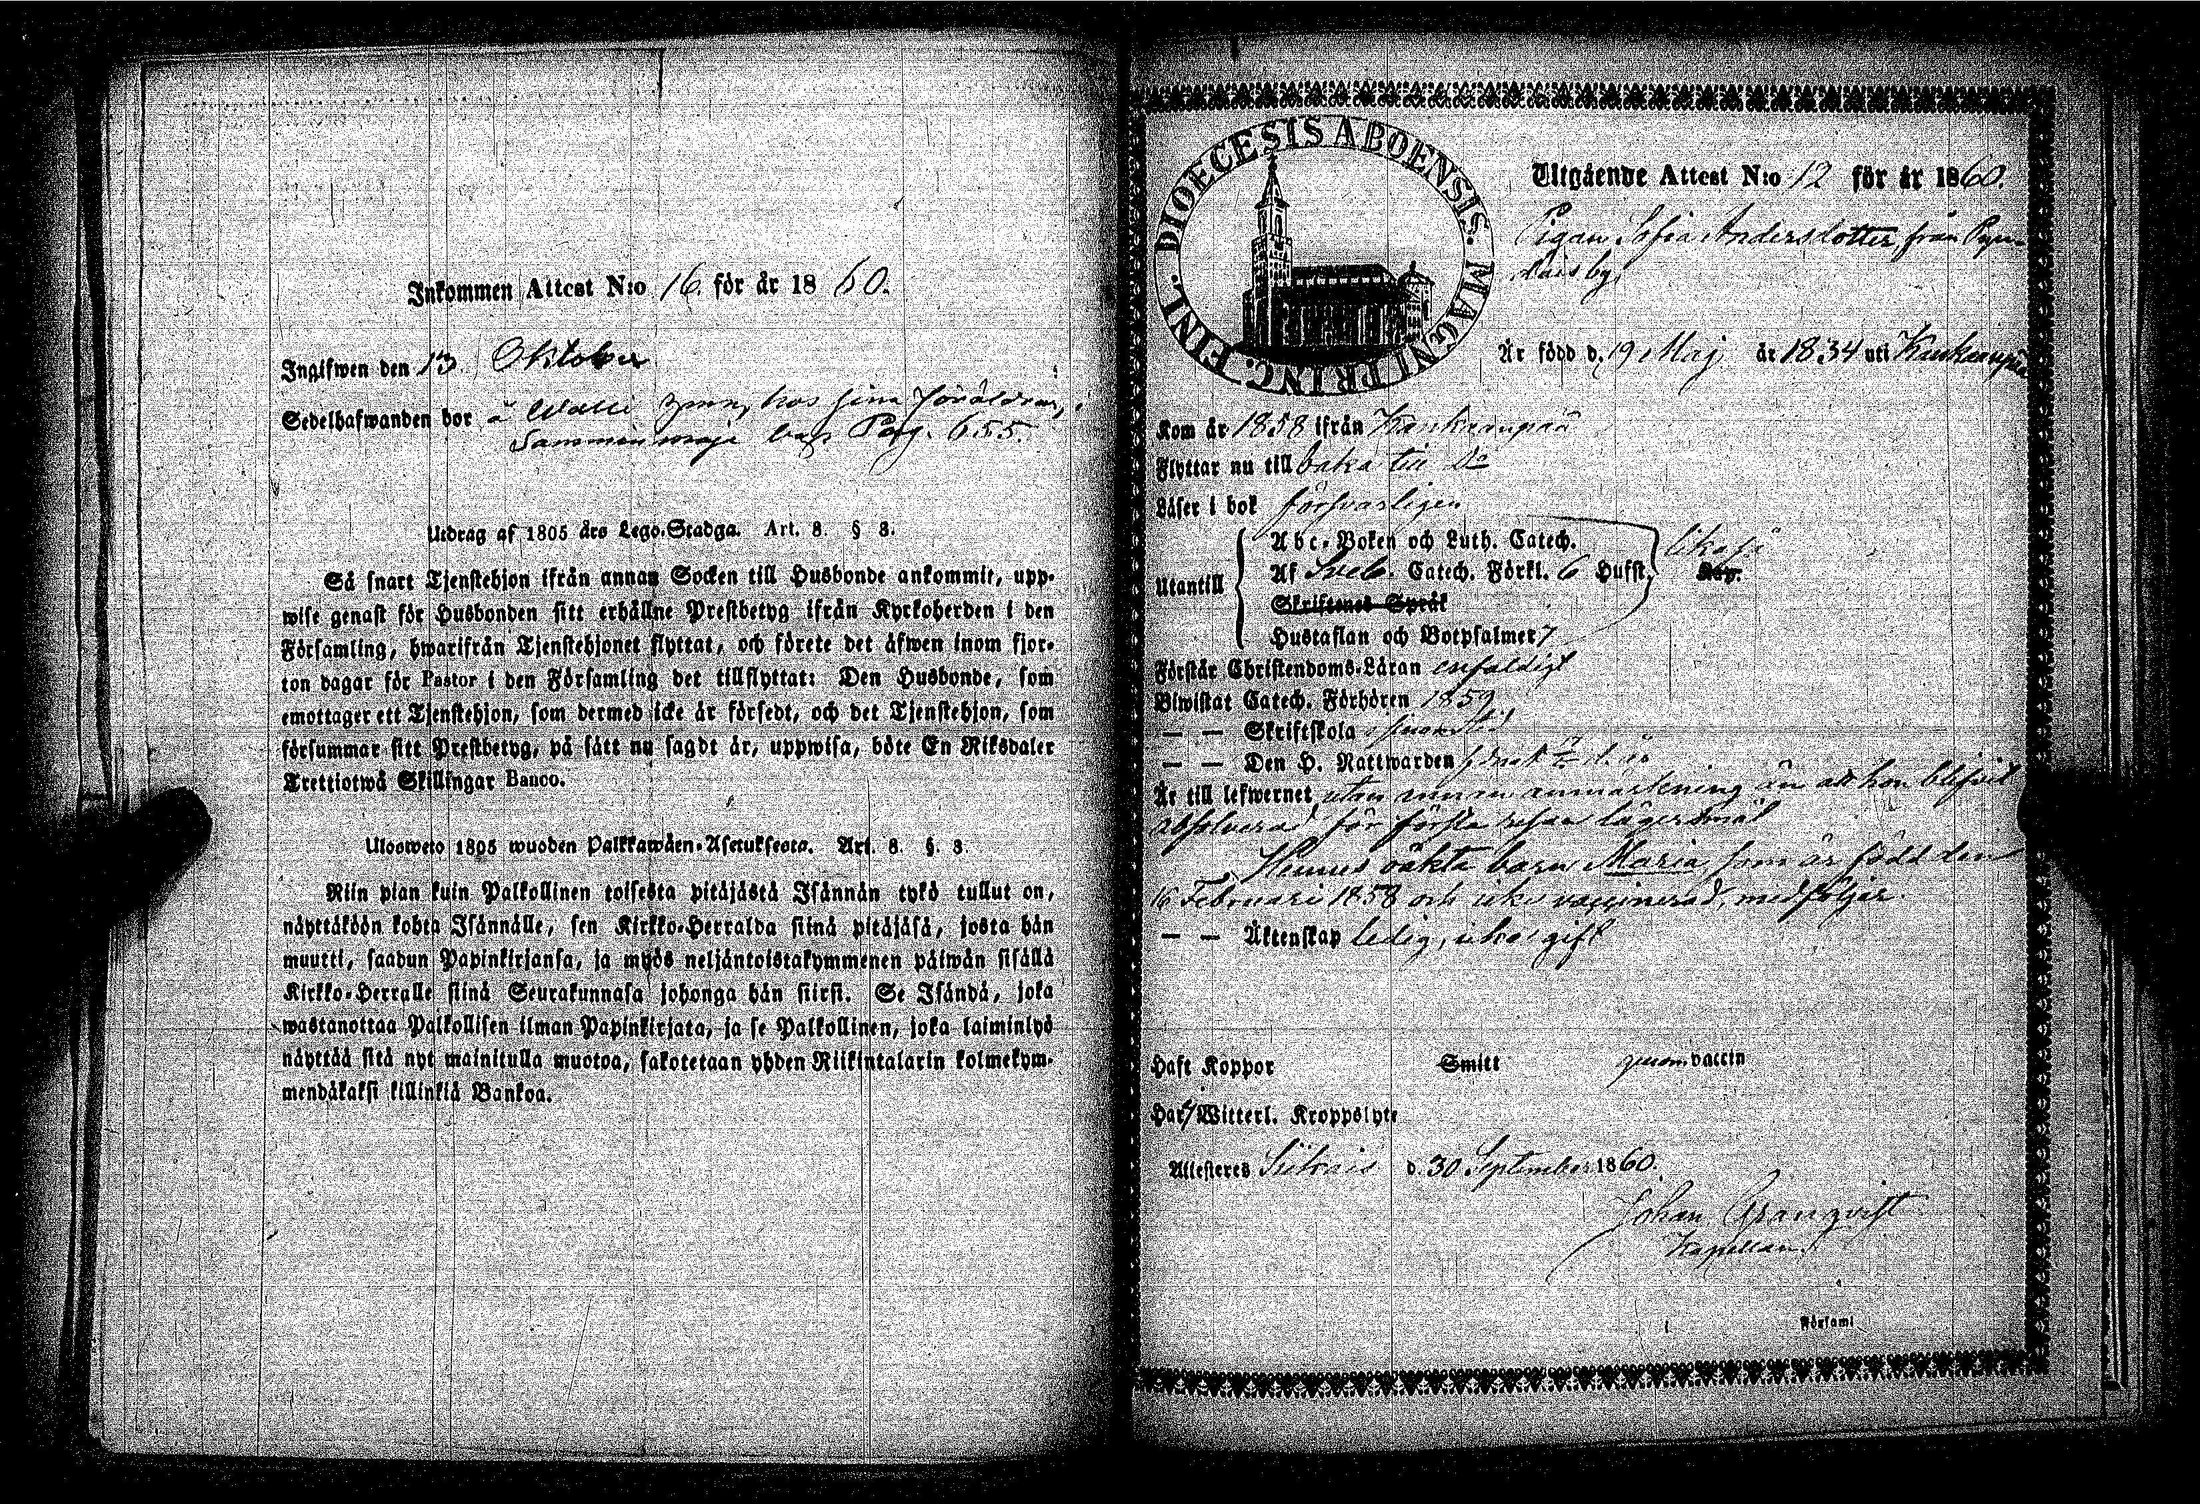 Inkommen Attest N:o 16. för år 1860.
Ingifwen den 13 Oktober
Sedelhafwanden bor å hos sina föräldrar,
Pag. 655.
Utdrag af 1805 års Lego-Stadga. Art. 8. § 3.
Så snart Tjenstehjon ifrån annan Socken till Husbonde ankommit, upp-
wise genast för Husbonden sitt erhållne Prestbetyg ifrån Kyrkoherden i den
Församling, hwarifrån Tjenstehjonet flyttat, och förete det äfwen inom fjor-
ton dagar för Pastor i den Församling det tillflyttat: Den Husbonde, som
emottager ett Tjenstehjon, som dermed icke är försedt, och det Tjenstehjon, som
försummar sitt Prestbetyg, på sätt nu sagdt är, uppwisa, böte En Riksdaler
Trettiotwå Skillingar Banco.
Ulosweto 1805 wuoden Palkkawäen-Asetuksesta. Art. 8. §. 3.
Niin pian kuin Palkollinen toisesta pitäjästä Isännän tykö tullut on,
näyttäköön kohta Isännälle, sen Kirkko-Herralda siinä pitäjäsä, josta hän
muutti, saadun Papinkirjansa, ja myös neljäntoistakymmenen päiwän sisällä
Kirkko-Herralle siinä Seurakunnasa johonga hän siirsi. Se Isändä, joka
wastanottaa Palkollisen ilman Papinkirjata, ja se Palkollinen, joka laiminlyö
näyttää sitä nyt mainitulla muotoa, sakotetaan yhden Riikintalarin kolmekym-
mendäkaksi killinkiä Bankoa.
DIOECESIS ABOENSIS. MAGNI PRINC. FINL.
Utgående Attest N:o 12 för år 1860.
Pigan Sofia Andersdotter, från
by,
Är född d. 19 Maj år 1834 uti Kankaanpää
Kom år 1858 ifrån Kankaanpää
Flyttar nu till baka till Do
Läser i bok försvarligen
Utantill
Abc-Boken och Luth. Catech.
Af Sveb. Catech. Förkl. 6 Hufst.
likaså
Skriftenes Språk
Hustaflan och Botpsalmer 7
Förstår Christendoms-Läran enfaldigt
Biwistat Catech. Förhören 1859
— — Skriftskola
— — Den H. Nattwarden
Är till lefwernet utan annan anmärkning än att hon blifvit
absolverad för första resan lägersmål
Hennes oäkta barn Maria, som är född den
16 Februari 1858 och icke vaccinerad, medföljer.
— — Äktenskap ledig, icke gift
Haft Koppor Smitt genom vaccin
Har 7 Witterl. Kroppslyte
Attesteres d. 30 September 1860.
Johan Granqvist
Kapellan.
Församl